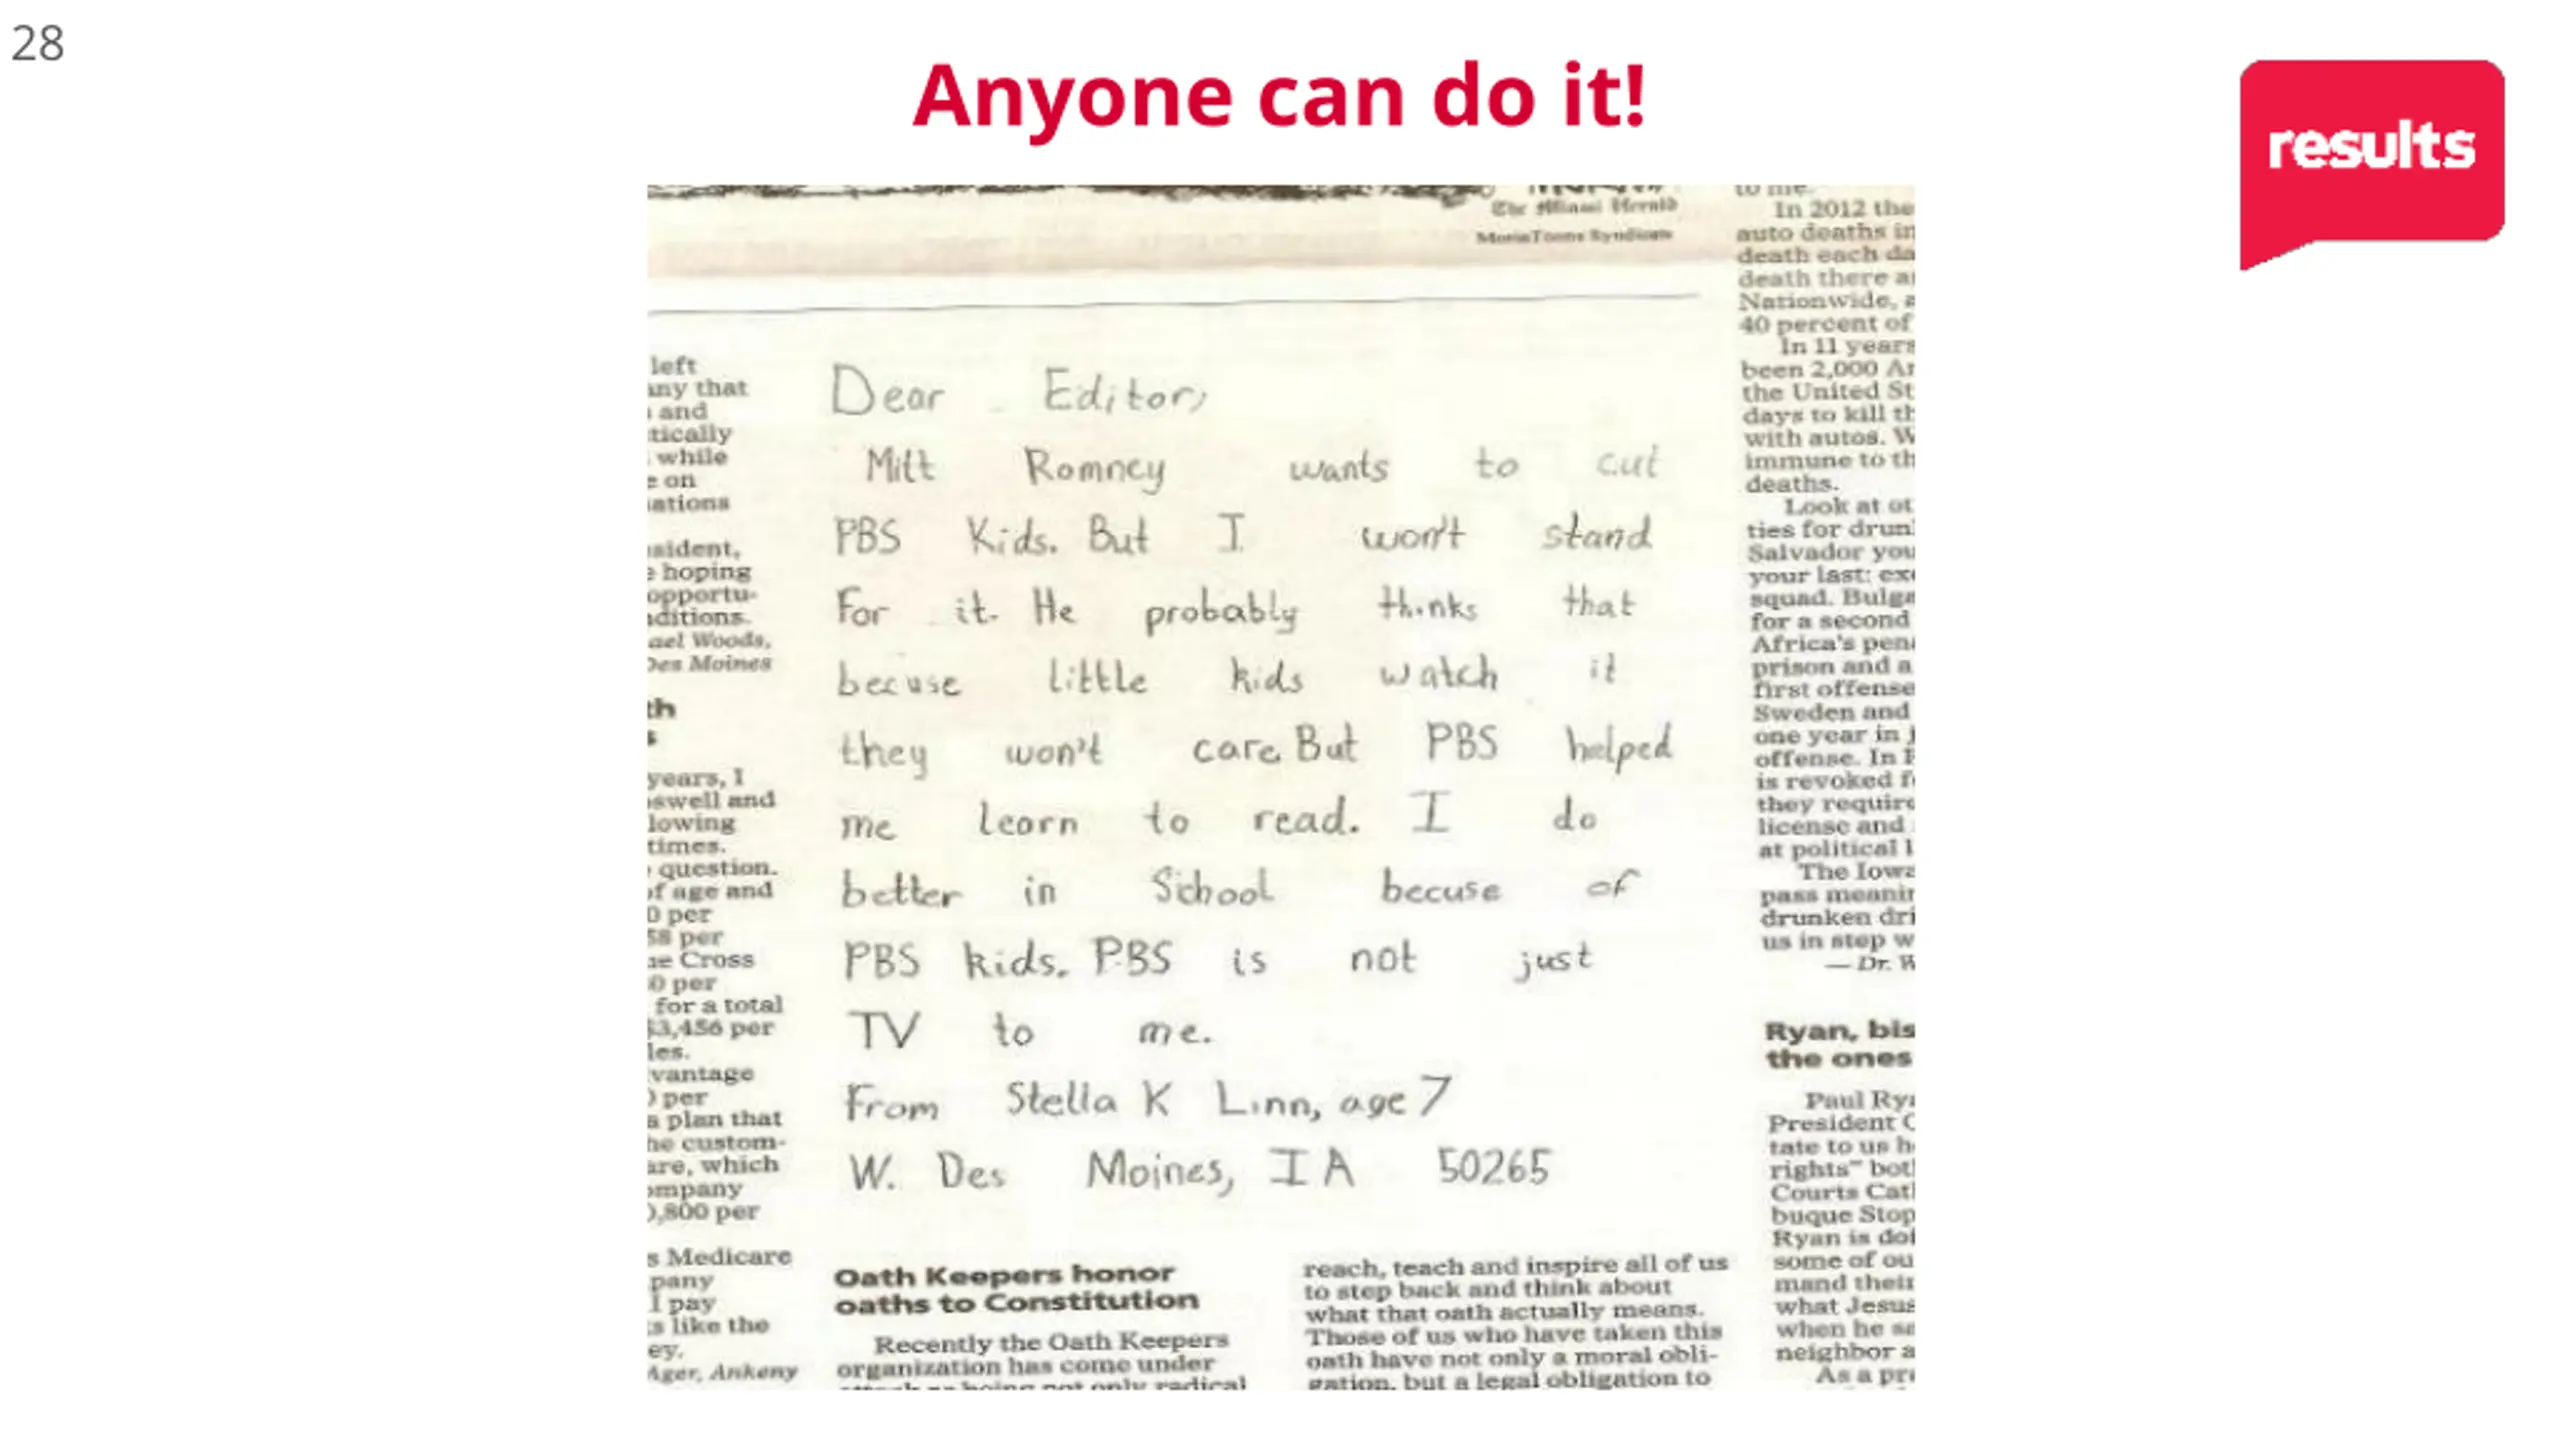 28
Anyone can do it!
results
The Miami Herald
to me.
In 2012 the
auto deaths in
death each
death there
Nationwide,
40 percent of
In 11 years
been 2,000
the United
days to kill
with autos.
immune to
deaths.
Look at
ties for
Salvador you
your last:
squad.
for a second
Africa's
prison and a
first offense
Sweden and
one year in
offense. In
is revoked
they require
license and
at political
The
pass
drunken
us in step
— Dr.
Ryan,
the ones
Paul
President
tate to us
rights" both
Courts
buque Stop
Ryan is
some of
mand their
what Jesus
when he
neighbor
As a
left
any that
and
tically
while
on
ations
hoping
opportu-
ditions.
Woods,
Des Moines
years, I
swell and
lowing
times.
question.
of age and
0 per
58 per
Cross
0 per
for a total
$3,456 per
les.
vantage
per
a plan that
custom-
are, which
ompany
0,800 per
s Medicare
pany
I pay
s like the
ey.
Ager, Ankeny
Dear Editor,
Mitt Romney wants to cut
PBS Kids. But I won't stand
For it. He probably thinks that
becuse little kids watch it
they won't care. But PBS helped
me learn to read. I do
better in School becuse of
PBS kids. PBS is not just
TV to me.
From Stella K Linn, age 7
W. Des Moines, IA 50265
Oath Keepers honor
oaths to Constitution
Recently the Oath Keepers
organization has come under
being not only radical
reach, teach and inspire all of us
to step back and think about
what that oath actually means.
Those of us who have taken this
oath have not only a moral obli-
gation, but a legal obligation to